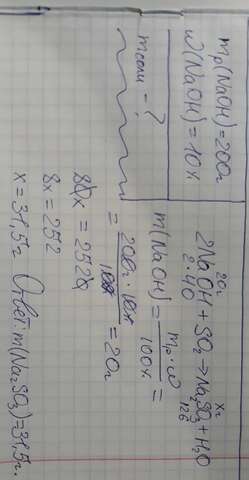 mр(NaOH)=200г
w(NaOH)=10%
mсоли - ?
20г xг
2NaOH + SO₂ → Na₂SO₃ + H₂O
2·40 126
m(NaOH) = mр·w / 100% =
= 200г·10% / 100% = 20г
80x = 2520
8x = 252
x = 31,5г Ответ: m(Na₂SO₃)=31,5г.